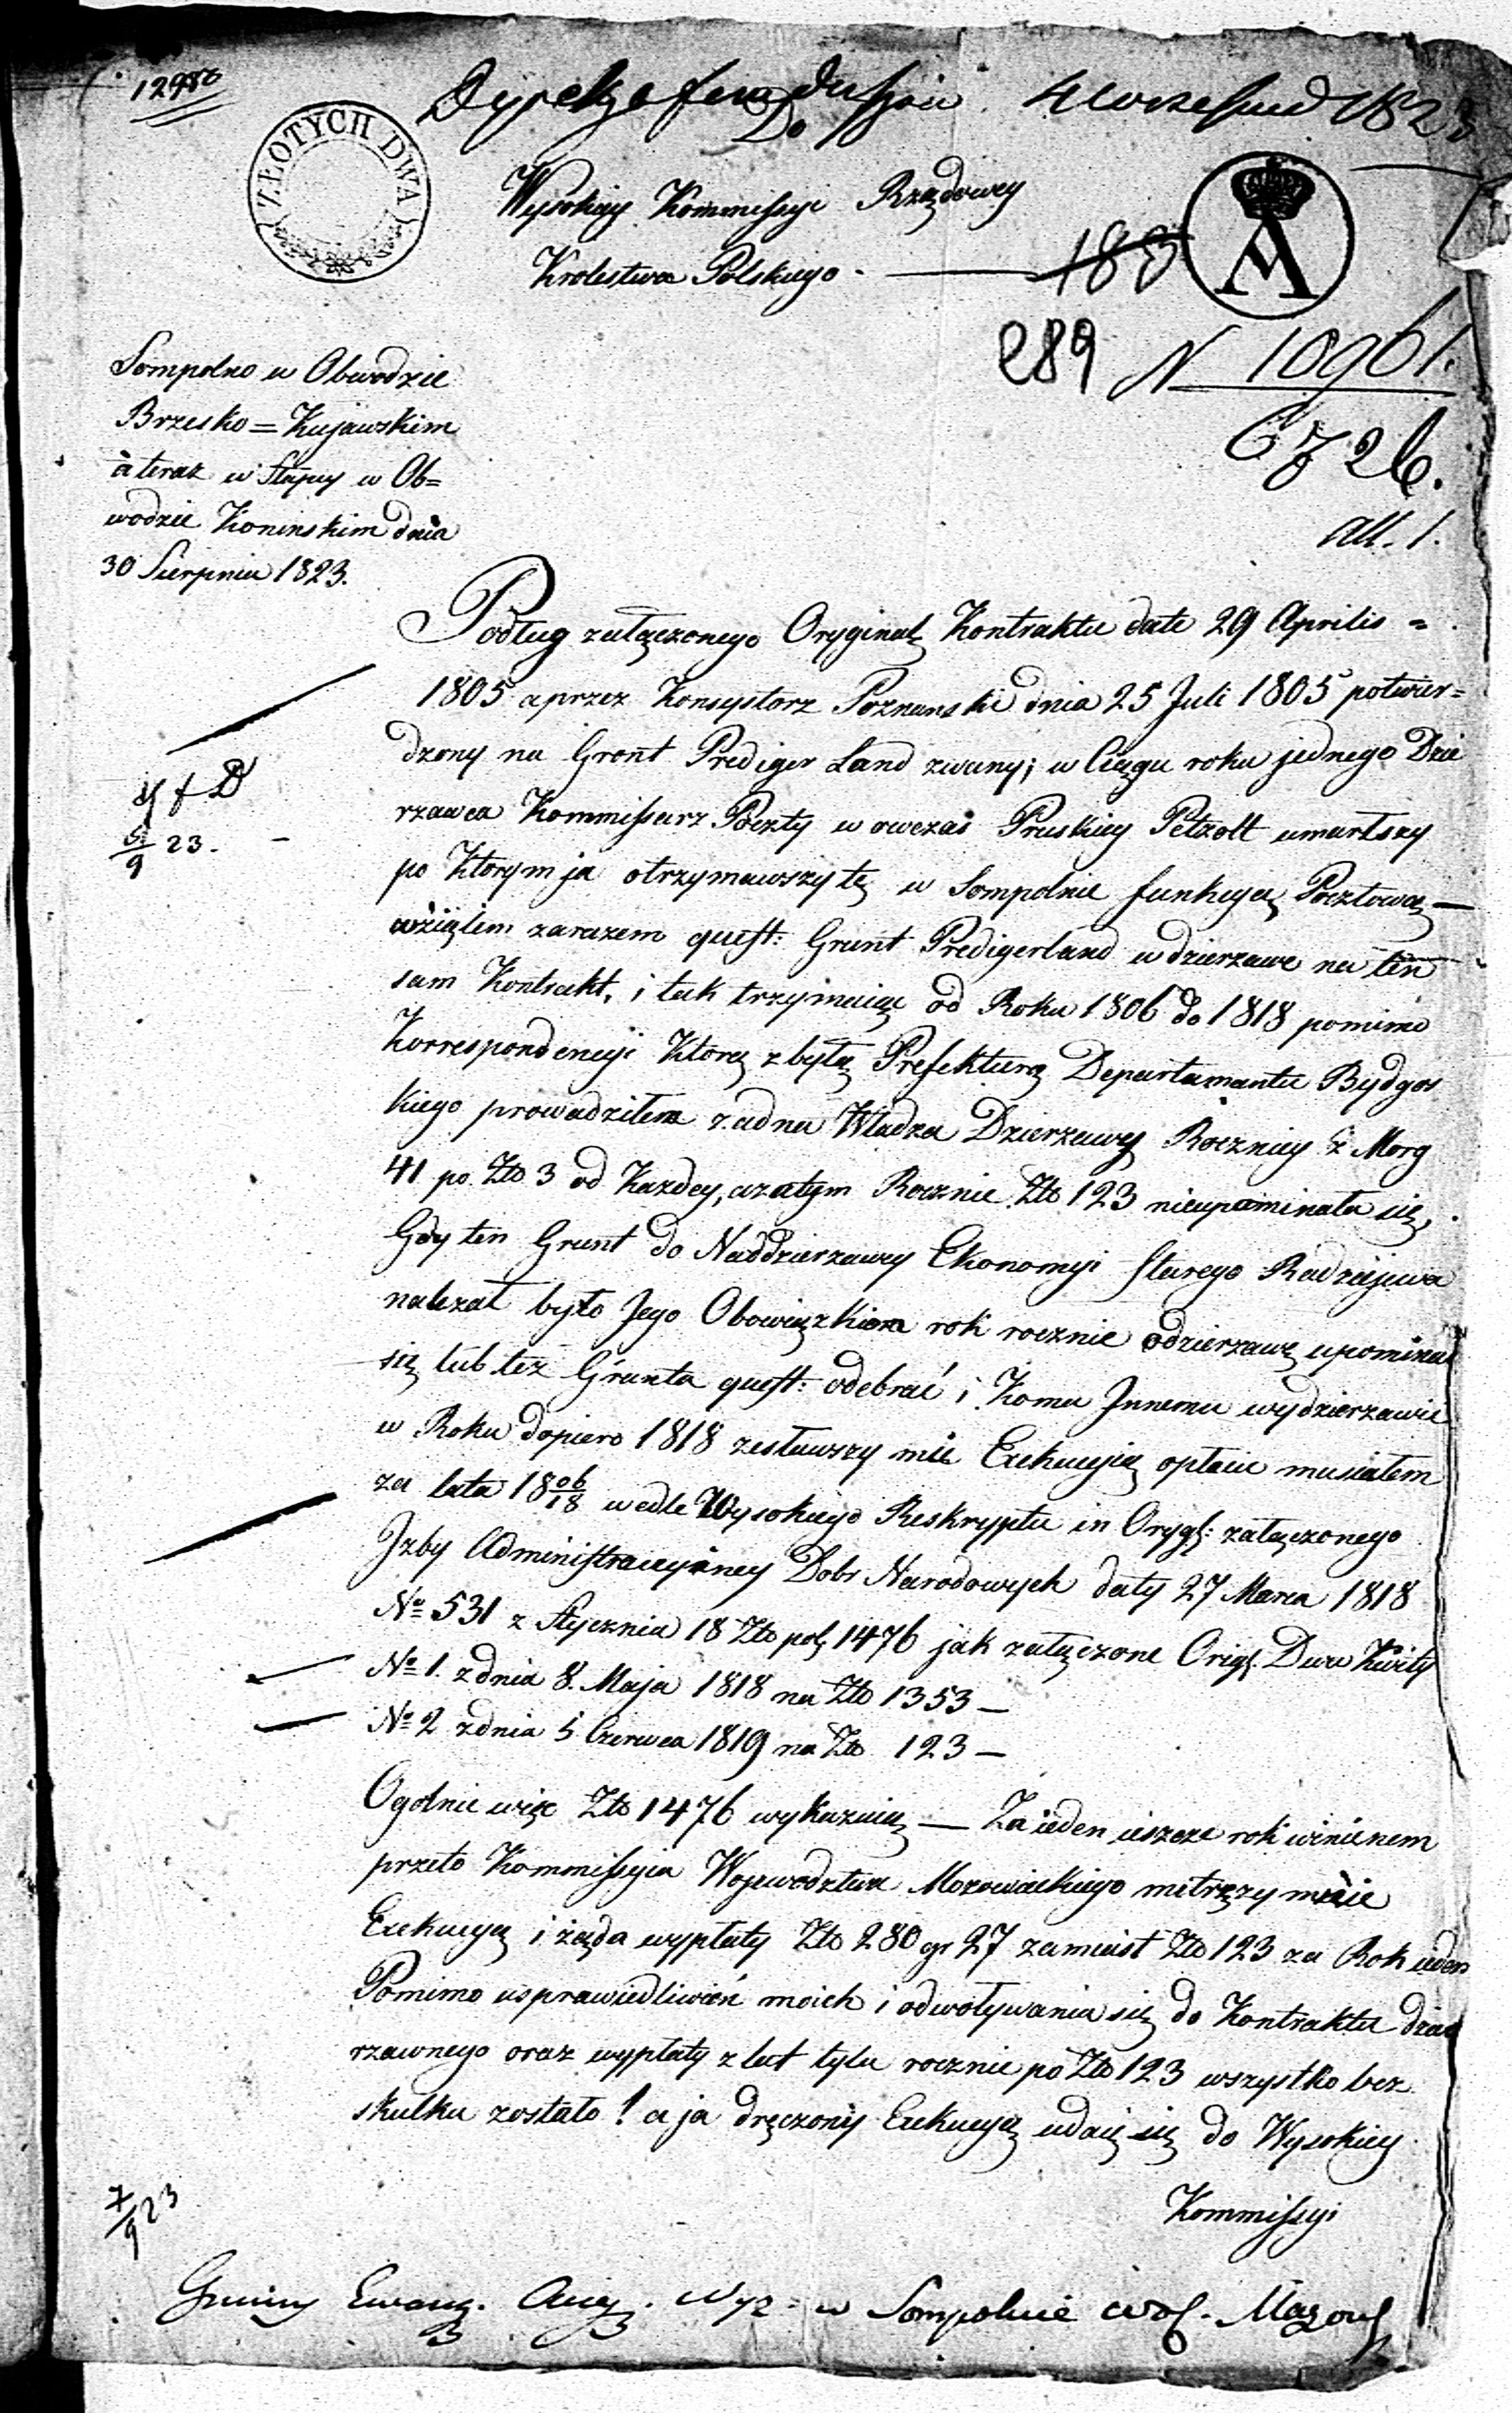 12986
4 Września 1823
Do
ZŁOTYCH DWA
Wysokiey Kommissyi Rządowey
Krolestwa Polskiego. —
183
A
289 N 10961.
6726.
All. 1.
Sompolno w Obwodzie
Brzesko = Kujawskim
a teraz w Słupcy w Ob=
wodzie Koninskim dnia
30 Sierpnia 1823.
Podług załączonego Oryginalę Kontraktu dato 29 Aprilis =
1805 a przez Konsystorz Poznanski dnia 25 Juli 1805 potwier=
dzony na Gront Prediger Land zwany; w Ciągu roku jednego Dzie
rzawca Kommissarz Poczty w owczas Pruskiey Petzolt umarłszy
5/9 23.
po Ktorym ja otrzymawszy tę w Sompolnie funkcyą Pocztową —
wziąlem zarazem quest: Grunt Predigerland w dzierzawe na ten
sam Kontrakt, i tak trzymaiąc od Roku 1806 do 1818 pomimo
Korrespondencyi Ktorą z byłą Prefekturą Departamantu Bydgos
kiego prowadziłem zadna Władza Dzierzawy Roczniey z Morg
41 po Zło 3 od Kazdey, a zatym Rocznie Zło 123 nieupominała się,
Gdy ten Grunt do Naddzierzawey Ekonomyi starego Radziejewa
nalezał było Jego Obowiązkiem rok rocznie o dzierzawę upominac
się lub też Grunta quest: odebrać i Komu Jnnemu wydzierzawić
w Roku dopiero 1818 zesławszy mie Exekucyią opłacic musiałem
za lata 18 06/18 wedle Wysokiego Reskryptu in Orygl: załączonego
Jzby Administracyiney Dobr Narodowych daty 27 Marca 1818
No 531 z Stycznia 18 Zło pol 1476 jak załączone Origl. Dwa Kwity
No 1. z dnia 8. Maja 1818 na Zło 1353 —
No 2 z dnia 5 Czerwca 1819 na Zło 123 —
Ogolnie więc Zło 1476 wykazuią — Za ieden ieszcze rok winienem
przeto Kommissyia Wojewodztwa Mazowieckiego mitrzy mie
Exekucyą i żąda wypłaty Zło 280 gr 27 zamiast Zło 123 za Rok ieden
Pomimo usprawiedliwień moich i odwoływania się do Kontraktu dzie
rzawnego oraz wypłaty z lat tylu rocznie po Zło 123 wszystko bez
skutku zostało! a ja dręczony Exekucyą udaię się do Wysokiey
Kommissyi
7/9 23
Gminy Ewang. Aug. Wyz: w Sompolnie Woj. Mazow